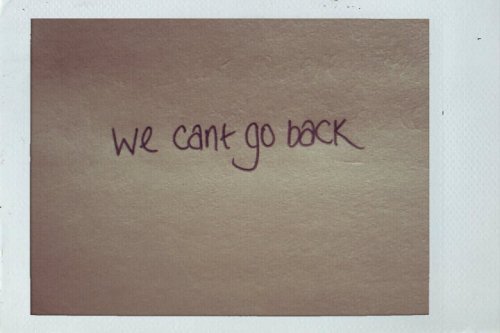 We cant go back